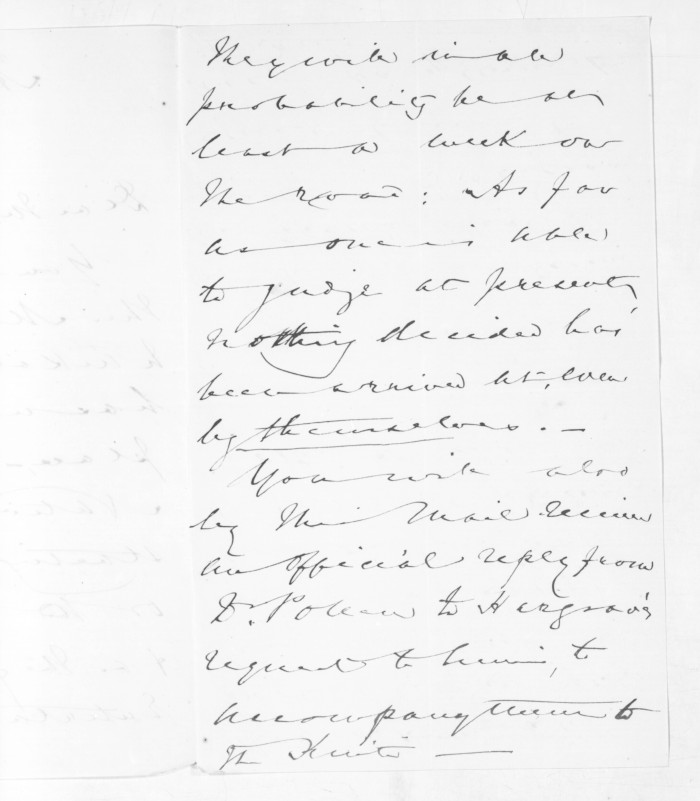 They will in all
probability be at
least a week on
the road: As far
as one is able
to judge at present,
nothing decided has
been arrived at, even
by themselves. —
You will also
by this Mail receive
an Official reply from
Dr. Pollen to Hargrave's
request to him, to
accompany them to
the Kuiti —